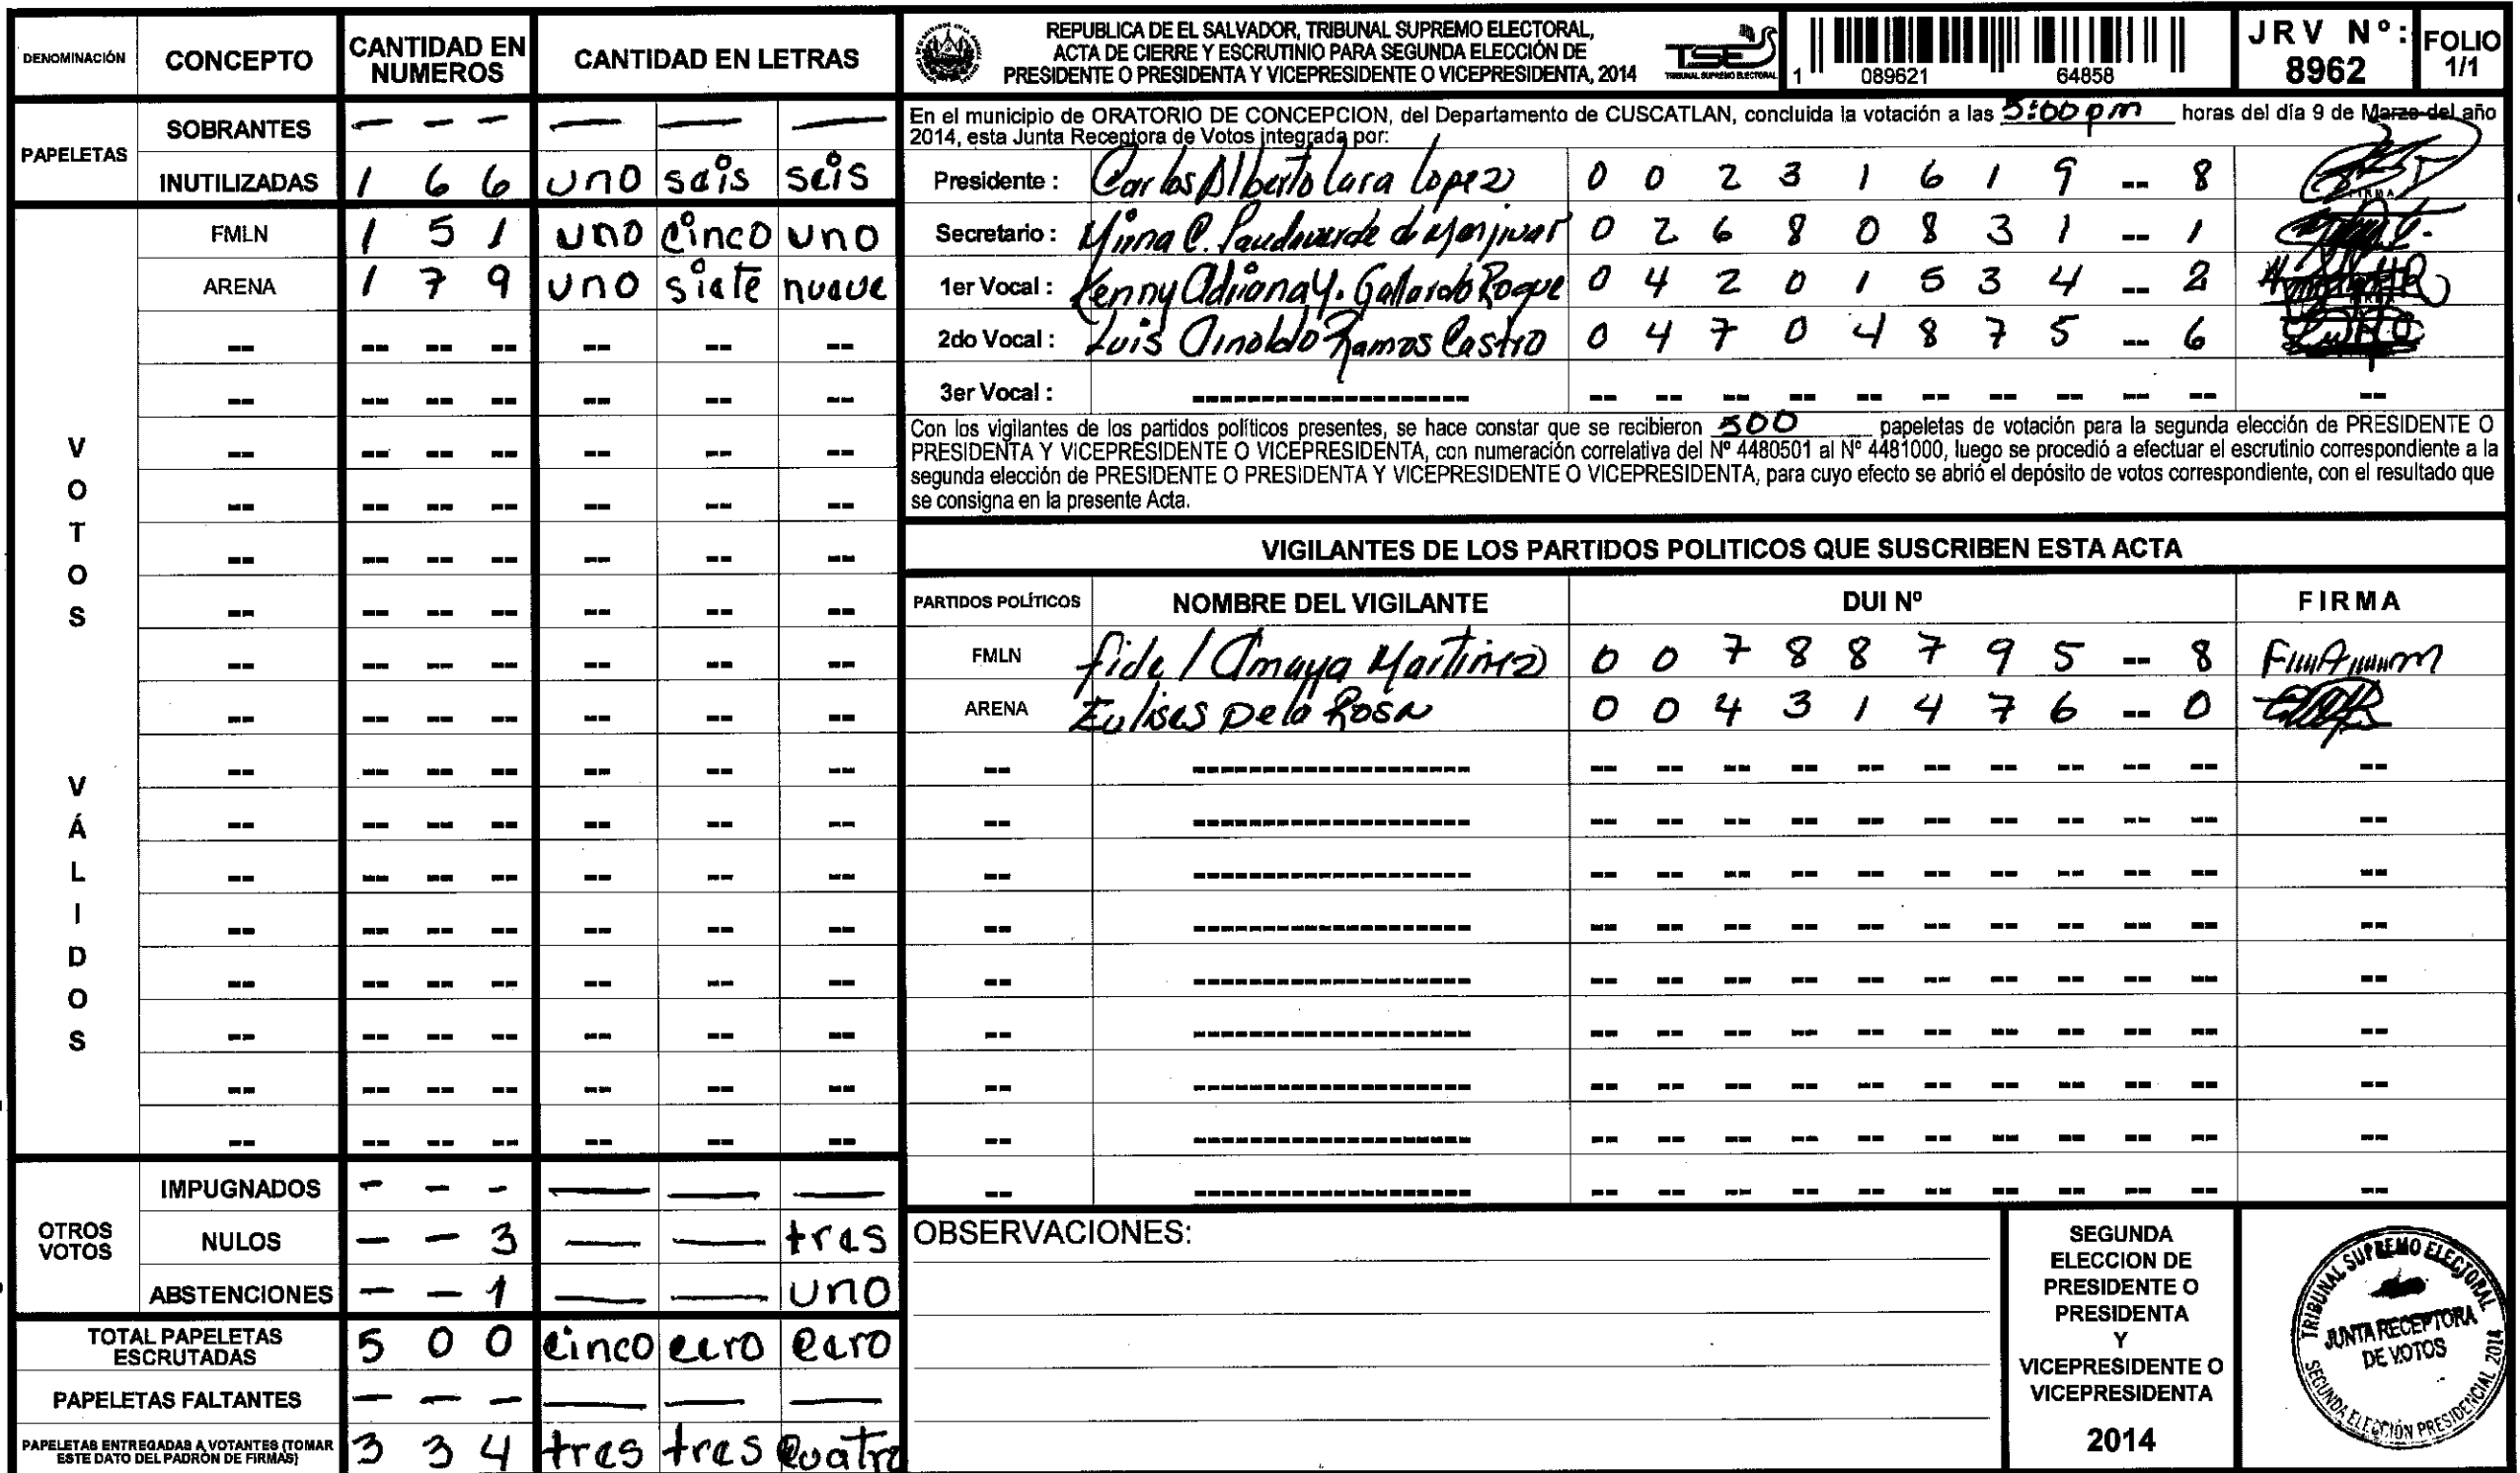 DENOMINACIÓN CONCEPTO CANTIDAD EN NUMEROS CANTIDAD EN LETRAS
PAPELETAS
SOBRANTES — — — — — —
INUTILIZADAS 1 6 6 uno seis seis
VOTOS VÁLIDOS
FMLN 1 5 1 uno cinco uno
ARENA 1 7 9 uno siete nueve
OTROS VOTOS
IMPUGNADOS - - - — — —
NULOS — — 3 — — tres
ABSTENCIONES — — 1 — — uno
TOTAL PAPELETAS ESCRUTADAS 5 0 0 cinco cero cero
PAPELETAS FALTANTES — — — — — —
PAPELETAS ENTREGADAS A VOTANTES (TOMAR ESTE DATO DEL PADRÓN DE FIRMAS) 3 3 4 tres tres cuatro
REPUBLICA DE EL SALVADOR, TRIBUNAL SUPREMO ELECTORAL,
ACTA DE CIERRE Y ESCRUTINIO PARA SEGUNDA ELECCIÓN DE
PRESIDENTE O PRESIDENTA Y VICEPRESIDENTE O VICEPRESIDENTA, 2014
TSE
TRIBUNAL SUPREMO ELECTORAL
1 089621 64858
JRV Nº: 8962
FOLIO 1/1
En el municipio de ORATORIO DE CONCEPCION, del Departamento de CUSCATLAN, concluida la votación a las 5:00 pm horas del día 9 de Marzo del año
2014, esta Junta Receptora de Votos integrada por:
Presidente : Carlos Alberto Lara Lopez 0 0 2 3 1 6 1 9 -- 8
Secretario : 0 2 6 8 0 8 3 1 -- 1
1er Vocal : Kenny Adriana Y. Gallardo Roque 0 4 2 0 1 5 3 4 -- 2
2do Vocal : Luis Arnoldo Ramos Castro 0 4 7 0 4 8 7 5 -- 6
3er Vocal : -------------------- -- -- -- -- -- -- -- -- -- -- --
Con los vigilantes de los partidos políticos presentes, se hace constar que se recibieron 500 papeletas de votación para la segunda elección de PRESIDENTE O
PRESIDENTA Y VICEPRESIDENTE O VICEPRESIDENTA, con numeración correlativa del Nº 4480501 al Nº 4481000, luego se procedió a efectuar el escrutinio correspondiente a la
segunda elección de PRESIDENTE O PRESIDENTA Y VICEPRESIDENTE O VICEPRESIDENTA, para cuyo efecto se abrió el depósito de votos correspondiente, con el resultado que
se consigna en la presente Acta.
VIGILANTES DE LOS PARTIDOS POLITICOS QUE SUSCRIBEN ESTA ACTA
PARTIDOS POLÍTICOS NOMBRE DEL VIGILANTE DUI Nº FIRMA
FMLN Fidel Amaya Martinez 0 0 7 8 8 7 9 5 -- 8
ARENA Eulises De la Rosa 0 0 4 3 1 4 7 6 -- 0
OBSERVACIONES:
SEGUNDA
ELECCION DE
PRESIDENTE O
PRESIDENTA
Y
VICEPRESIDENTE O
VICEPRESIDENTA
2014
TRIBUNAL SUPREMO ELECTORAL
JUNTA RECEPTORA
DE VOTOS
SEGUNDA ELECCIÓN PRESIDENCIAL 2014